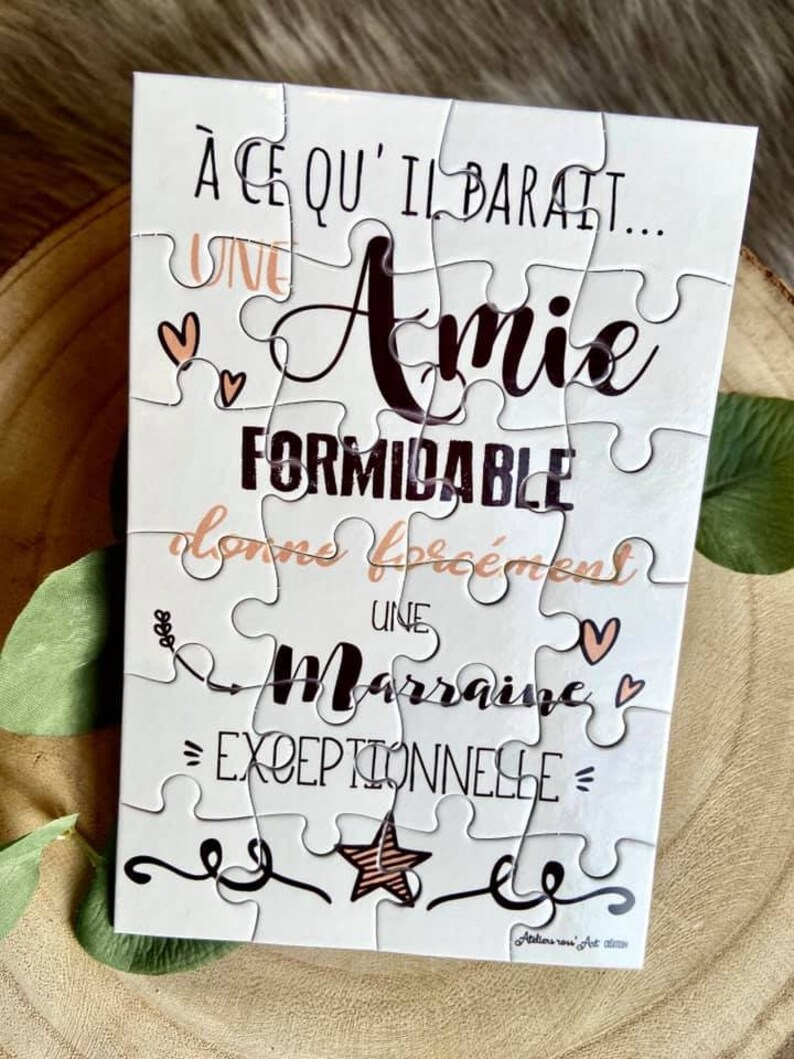 À CE QU'IL PARAIT...
UNE
Amie
FORMIDABLE
donne forcément
UNE
Marraine
EXCEPTIONNELLE
Ateliers ross'Art CRÉATION